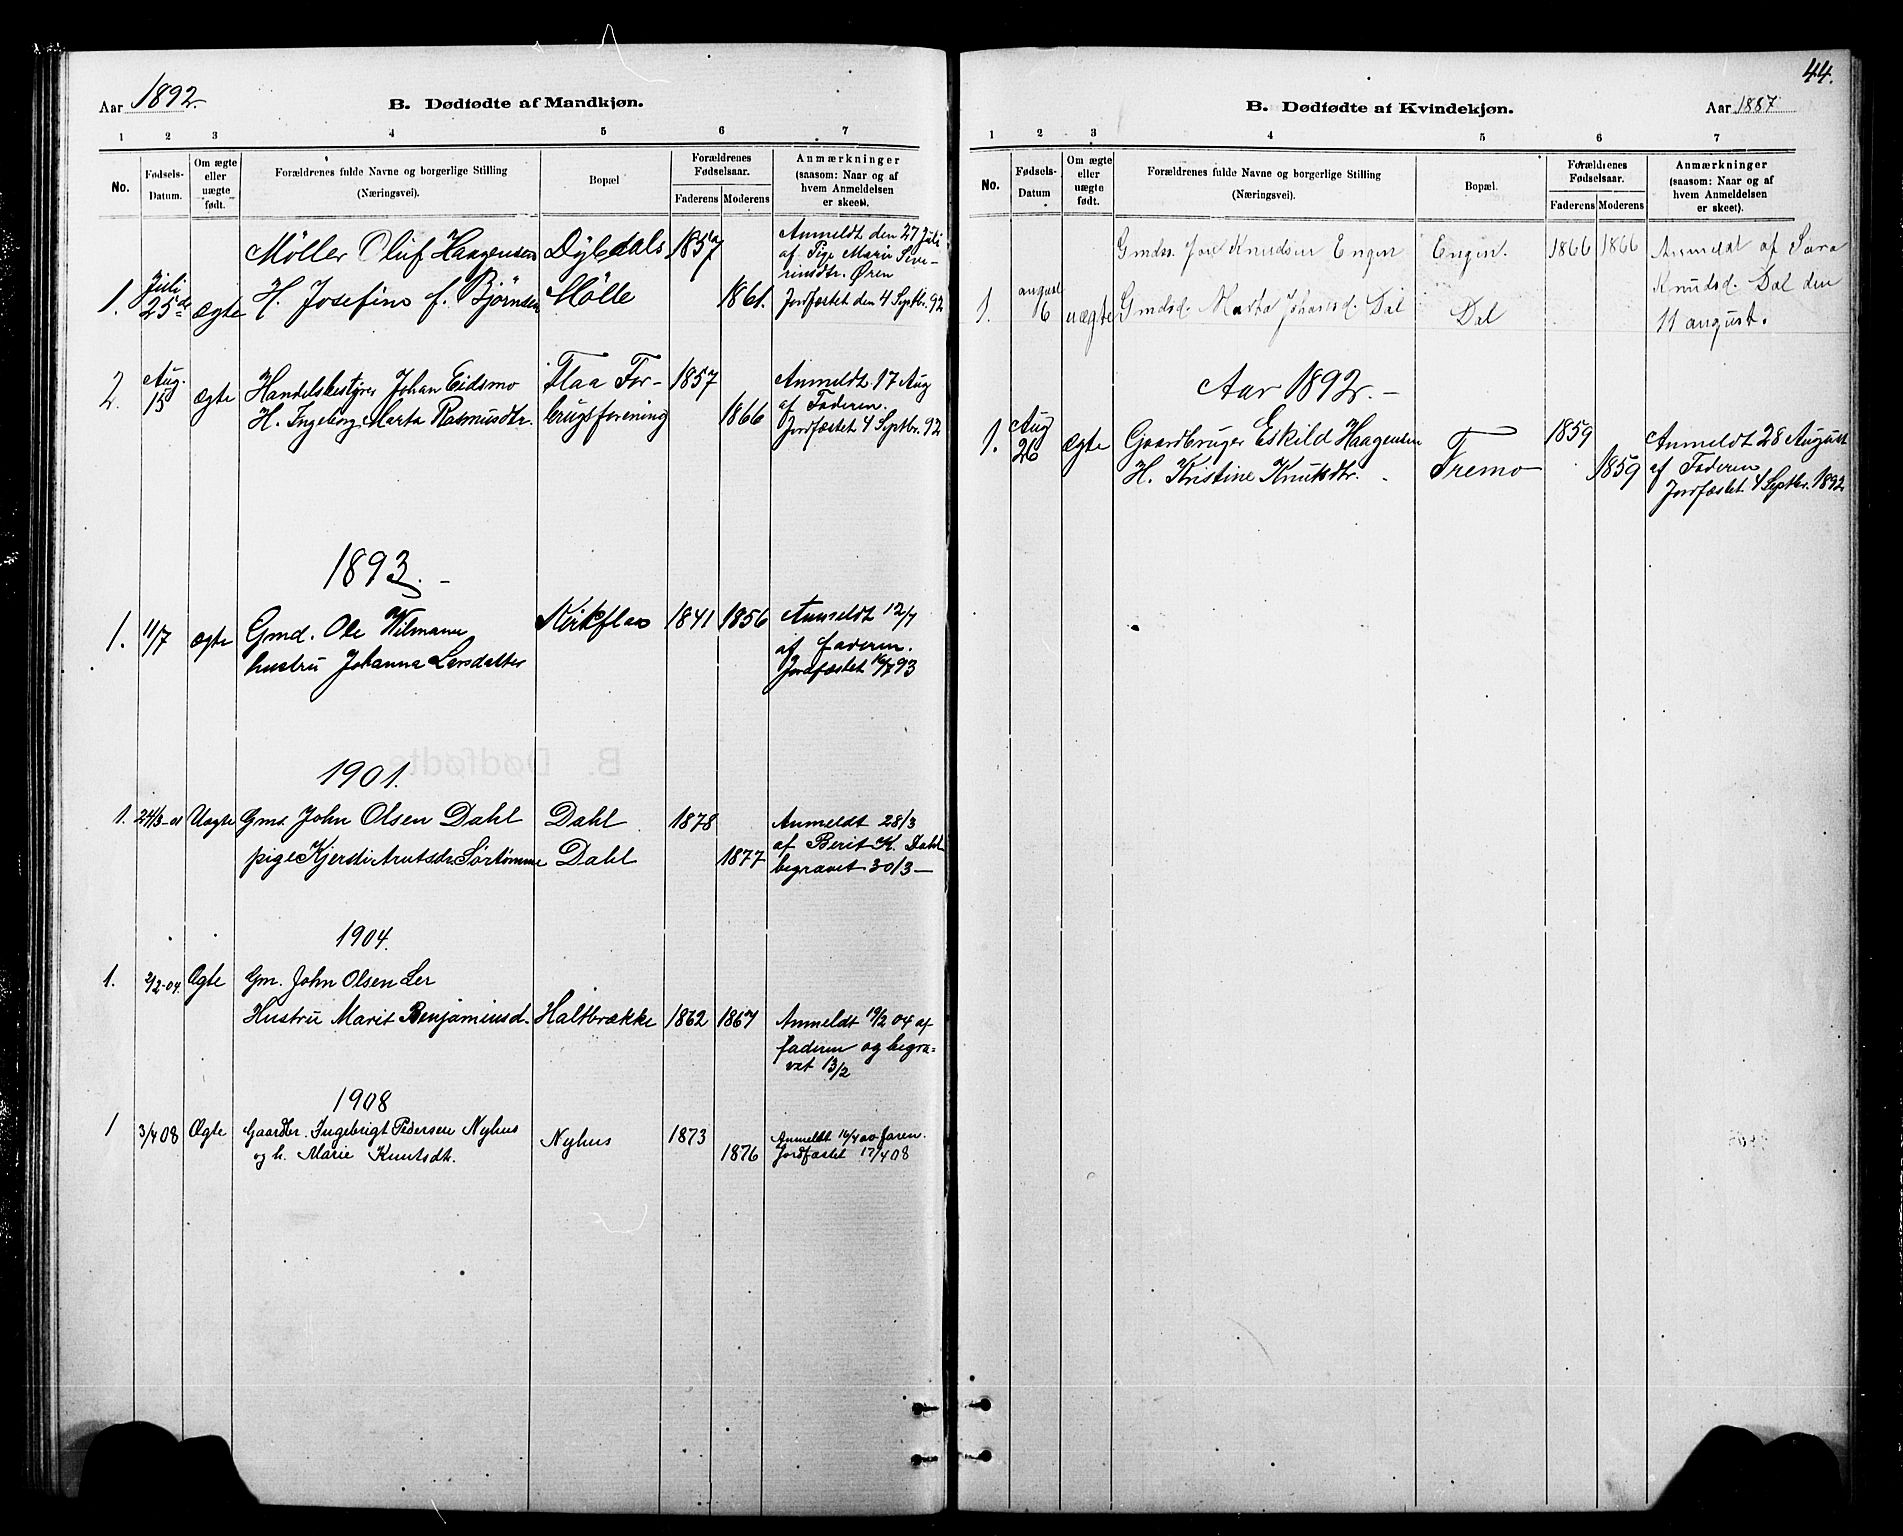 Aar 1892.
B. Dødfødte af Mandkjøn.
1 2 3 4 5 6 7
No.
Fødsels-
Datum.
Om ægte
eller
uægte
født.
Forældrenes fulde Navne og borgerlige Stilling
(Næringsvei).
Bopæl
Forældrenes
Fødselsaar.
Faderens Moderens
Anmærkninger
(saasom: Naar og af
hvem Anmeldelsen
er skeet).
Møller Oluf Haagensen Dybdals 1857 Anmeldt den 27 Juli
af Pige Marie Seve-
rinsdtr. Øren
1. Juli 25de ægte H. Josefine f. Bjørnsen Mølle 1861. Jordfæstet den 4 Septbr. 92
2. Aug. 15 ægte Handelsbestyrer Johan Eidsmo Flaa For- 1857 Anmeldt 17 Aug
af Faderen.
H. Ingeborg Marta Rasmusdtr. brugsforening 1866 Jordfæstet 4 Septbr. 92
1893. -
1. 11/7 ægte Gmd. Ole Wilmann Kirkflaa 1841 1856 Anmeldt 12/7
hustru Johanna Larsdatter af faderen.
Jordfæstet 16/7 93
1901.
1. 24/3-01 Uægte Gmd John Olsen Dahl Dahl 1878 Anmeldt 28/3
af Berit K. Dahl
pige Kjersti Sørtømme Dahl 1877 begravet 30/3 -
1904.
1. 2/2-04. Ægte Gm. John Olsen Ler
Hustru Marit Benjaminsd. Haltbrække 1862 1867 Anmeldt 10/2 04 af
faderen og begra=
vet 13/2
1908
1 3/4 08 Ægte Gaardbr. Ingebrigt Pedersen Nyhus Nyhus 1873 Anmeldt 16/4 faren.
og h. Marie Knutsdtr. 1876 Jordfæstet 17/4 08
44.
B. Dødfødte af Kvindekjøn.
Aar 1887
1 2 3 4 5 6 7
No.
Fødsels-
Datum
Om ægte
eller
uægte
født.
Forældrenes fulde Navne og borgerlige Stilling
(Næringsvei).
Bopæl.
Forældrenes
Fødselsaar.
Faderens Moderens
Anmærkninger
(saasom: Naar og af
hvem Anmeldelsen
er skeet).
Gmds. Knudsen Engen Engen. 1866 1866 Anmeldt af Sara
Knudsd. Dal den
1. august 6 uægte Gmdsd. Marta Johansd. Dal Dal 11 august.
Aar 1892. -
1. Aug 26 ægte Gaardbruger Eskild Haagensen Tremo 1859 Anmeldt 28 August
H. Kristine Knutsdtr. 1859 af Faderen
Jordfæstet 4 Septbr. 1892